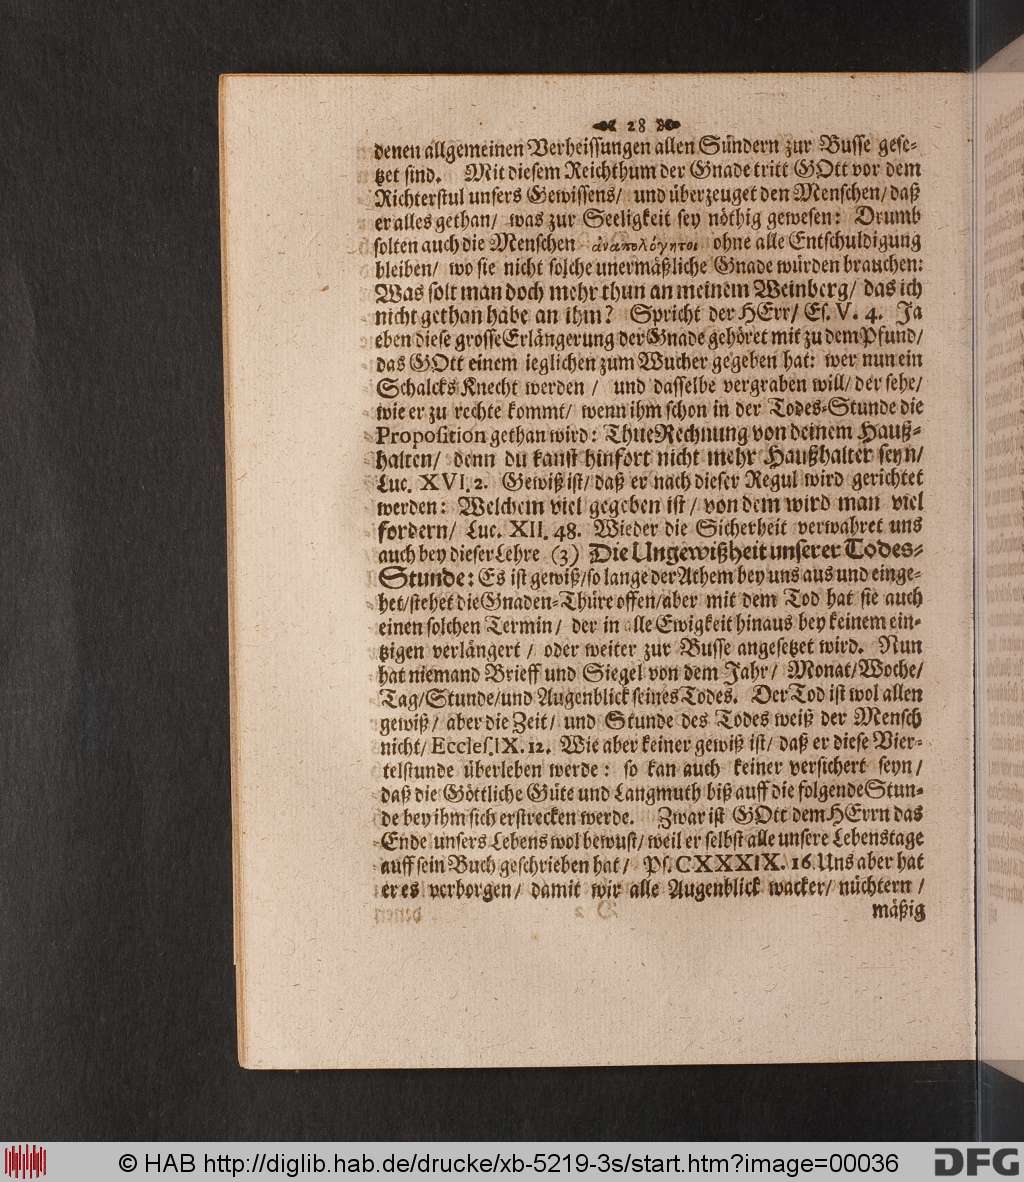 28
denen allgemeinen Verheissungen allen Sündern zur Busse gese-
tzet sind. Mit diesem Reichthum der Gnade tritt GOtt vor dem
Richterstul unsers Gewissens/ und überzeuget den Menschen/ daß
er alles gethan/ was zur Seeligkeit sey nöthig gewesen: Drumb
solten auch die Menschen ἀναπολόγητοι ohne alle Entschuldigung
bleiben/ wo sie nicht solche unermäßliche Gnade würden brauchen:
Was solt man doch mehr thun an meinem Weinberg/ das ich
nicht gethan habe an ihm? Spricht der HErr/ Es. V. 4. Ja
eben diese grosse Erlängerung der Gnade gehöret mit zu dem Pfund/
das GOtt einem ieglichen zum Wucher gegeben hat: wer nun ein
Schalcks Knecht werden / und dasselbe vergraben will/ der sehe/
wie er zu rechte kommt/ wenn ihm schon in der Todes-Stunde die
Proposition gethan wird: Thue Rechnung von deinem Hauß-
halten/ denn du kanst hinfort nicht mehr Haußhalter seyn/
Luc. XVI. 2. Gewiß ist/ daß er nach dieser Regul wird gerichtet
werden: Welchem viel gegeben ist/ von dem wird man viel
fordern/ Luc. XII. 48. Wieder die Sicherheit verwahret uns
auch bey dieser Lehre (3) Die Ungewißheit unserer Todes-
Stunde: Es ist gewiß/ so lange der Athem bey uns aus und einge-
het/ stehet die Gnaden-Thüre offen/ aber mit dem Tod hat sie auch
einen solchen Termin/ der in alle Ewigkeit hinaus bey keinem ein-
tzigen verlängert / oder weiter zur Busse angesetzet wird. Nun
hat niemand Brieff und Siegel von dem Jahr/ Monat/ Woche/
Tag/ Stunde/ und Augenblick seines Todes. Der Tod ist wol allen
gewiß/ aber die Zeit/ und Stunde des Todes weiß der Mensch
nicht/ Eccles. IX. 12. Wie aber keiner gewiß ist/ daß er diese Vier-
telstunde überleben werde: so kan auch keiner versichert seyn/
daß die Göttliche Güte und Langmuth biß auff die folgende Stun-
de bey ihm sich erstrecken werde. Zwar ist GOtt dem HErrn das
Ende unsers Lebens wol bewust/ weil er selbst alle unsere Lebenstage
auff sein Buch geschrieben hat/ Ps. CXXXIX. 16. Uns aber hat
er es verborgen/ damit wir alle Augenblick wacker/ nüchtern /
mäßig
© HAB http://diglib.hab.de/drucke/xb-5219-3s/start.htm?image=00036
DFG